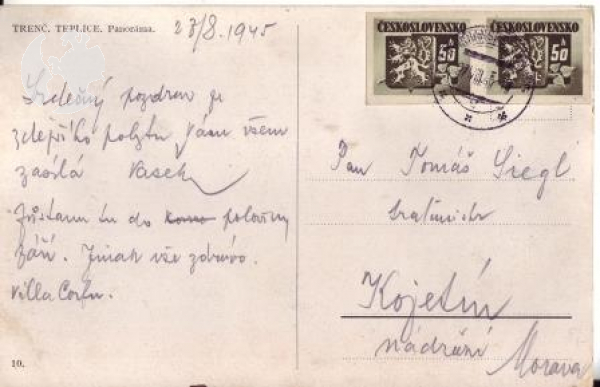 TRENČ. TEPLICE. Panoráma.
27/8. 1945
Srdečný pozdrav ze
zdejšího pobytu Vám všem
zasílá Vašek
Zůstanu tu do poloviny
září. Jinak vše zdrávo.
Villa
10.
ČESKOSLOVENSKO ČESKOSLOVENSKO
50 50
Pan Tomáš Siegl
Kojetín
nádražní
Morava